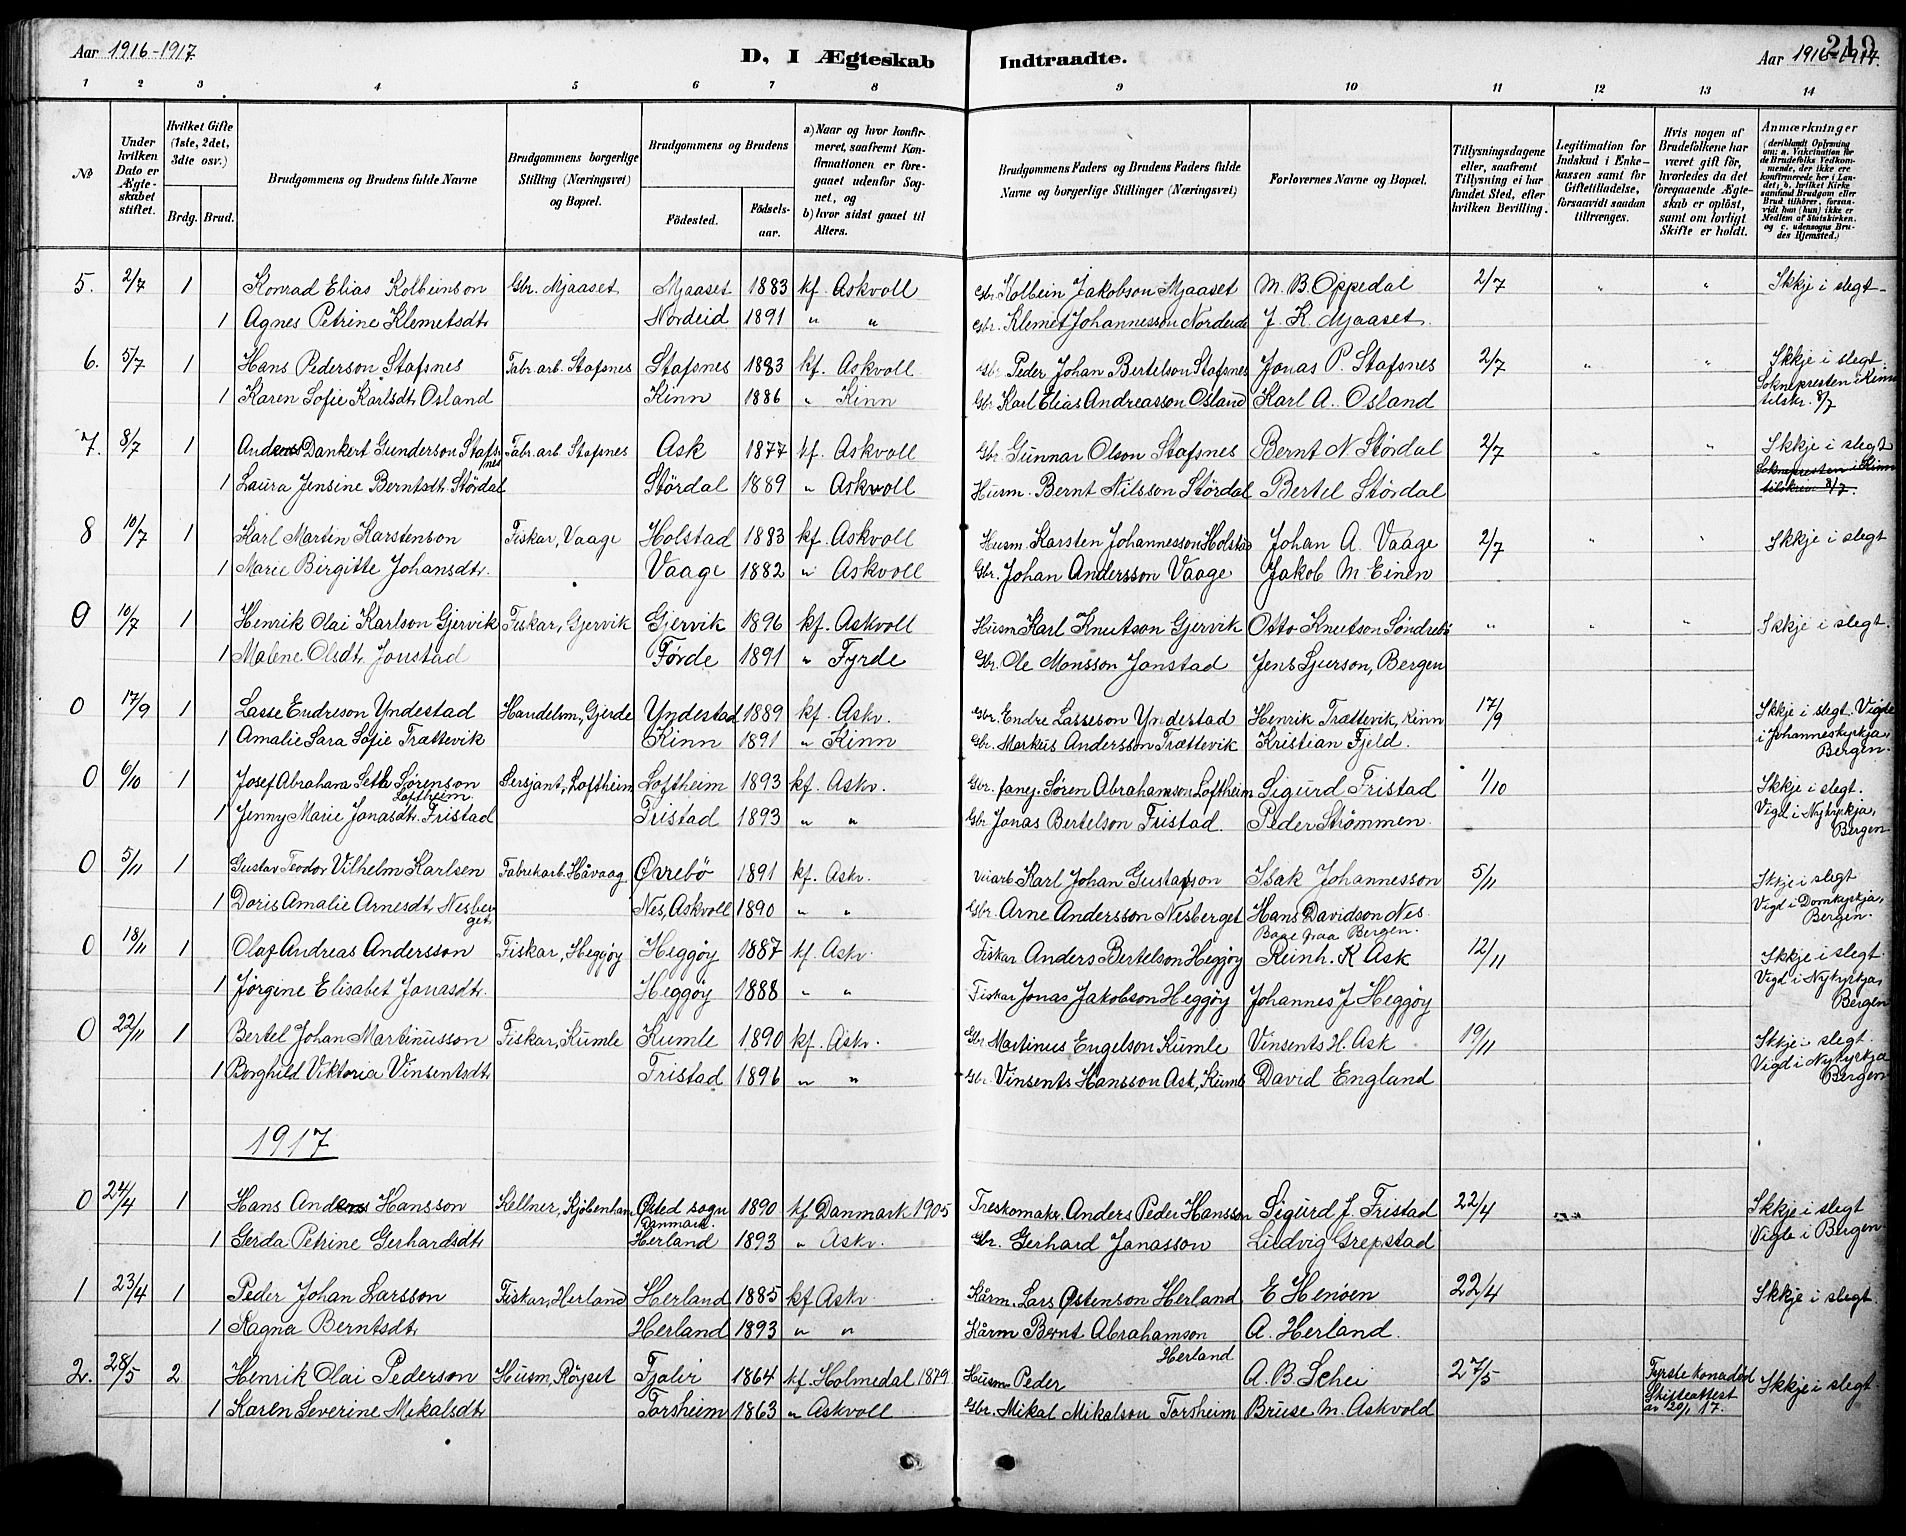 Aar 1916-1917.
D, I Ægteskab Indtraadte.
219
Aar 1916-1917.
1 2 3 4 5 6 7 8 9 10 11 12 13 14
No
Under hvilken Dato er Ægteskabet stiftet.
Hvilket Gifte (1ste, 2det, 3die osv.)
Brdg. Brud.
Brudgommens og Brudens fulde Navne
Brudgommens borgerlige Stilling (Næringsvei) og Bopæl.
Brudgommens og Brudens
Fødested. Fødsels-aar.
a) Naar og hvor konfirmeret, saafremt Konfirmationen er foregaaet udenfor Sognet, og
b) hvor sidst gaaet til Alters.
Brudgommens Faders og Brudens Faders fulde Navne og borgerlige Stillinger (Næringsvei)
Forlovernes Navne og Bopæl.
Tillysningsdagene eller, saafremt Tillysning ei har fundet Sted, efter hvilken Bevilling.
Legitimation for Indskud i Enkekassen samt for Giftetilladelse, forsaavidt saadan tiltrænges.
Hvis nogen af Brudefolkene har været gift før, hvorledes da det foregaaende Ægteskab er opløst, samt om lovligt Skifte er holdt.
Anmærkninger
(deriblandt Oplysning om: a. Vakcination for de Brudefolks Vedkommende, der ikke ere konfirmerede her i Landet; b. hvilket Kirkesamfund Brudgom eller Brud tilhører, forsaavidt han (hun) ikke er Medlem af Statskirken, og c. udensogns Brudes Hjemsted.)
5. 2/7 1 Konrad Elias Kolbeinson Gbr. Mjaaset Mjaaset 1883 kf. Askvoll Gbr. Kolbein Jakobson Mjaaset M. B. Oppedal 2/7 " " Ikkje i slegt
1 Agnes Petrine Klemetsdtr Nordeid 1891 " " Gbr. Klemet Johannesson Nordeide J. K. Mjaaset.
6. 5/7 1 Hans Pederson Stafsnes Fabr. arb. Stafsnes Stafsnes 1883 kf. Askvoll Gbr Peder Johan Bertelson Stafsnes Jonas P. Stafsnes 2/7 " " Ikkje i slegt.
1 Karen Sofie Karlsdtr Osland Kinn 1886 " Kinn Gbr Karl Elias Andreasson Osland Karl A. Osland Soknepresten i Kinn tilskr. 8/7
7. 8/7 1 Anders Dankert Gunderson Stafsnes Fabr. arb Stafsnes Ask 1877 kf. Askvoll Gbr. Gunnar Olson Stafsnes Bernt N. Størdal 2/7 " " Ikkje i slegt
1 Laura Jensine Berntsdtr Størdal Størdal 1889 " Askvoll Husm. Bernt Nilsson Størdal Bertel Størdal Soknepresten i Kinn tilskriv. 8/7.
8 10/7 1 Karl Martin Karstenson Fiskar, Vaage Holstad 1883 kf. Askvoll Husm. Karsten Johannesson Holstad Johan A. Vaage 2/7 " " Ikkje i slegt
1 Marie Birgitte Johansdtr. Vaage 1882 " Askvoll Gbr. Johan Andersson Vaage Jakob M Einen
9 10/7 1 Henrik Olai Karlson Gjervik Fiskar, Gjervik Gjervik 1896 kf. Askvoll Husm Karl Knutson Gjervik Otto Knutson Søndrebø " " " Ikkje i slegt.
1 Malene Olsdtr Jonstad Førde 1891 " Fyrde Gbr. Ole Monsson Jonstad Jens Sjurson, Bergen
0 17/9 1 Lasse Endreson Yndestad Handelsm, Gjerde Yndestad 1889 kf. Askv. Gbr. Endre Lasseson Yndestad Henrik Trættevik, Kinn 17/9 Ikkje i slegt. Vigde
1 Amalie Sara Sofie Trættevik Kinn 1891 " Kinn Gbr. Markus Andersson Trættevik Kristian Fjeld. i Johanneskyrkja, Bergen.
0 6/10 1 Josef Abraham Seth Sørenson Loftheim Sersjant, Loftheim Loftheim 1893 kf. Askv. Gbr. fanej. Søren Abrahamson Loftheim Sigurd Fristad 1/10 Ikkje i slegt.
1 Jenny Marie Jonasdtr. Fristad Fristad 1893 " " Gbr Jonas Bertelson Fristad. Peder Strömmen. Vigd i Nykyrkja, Bergen
0 5/11 1 Gustav Teodor Vilhelm Karlsen Fabrikarb. Håvaag Øvrebö 1891 kf. Askv. Veiarb. Karl Johan Gustafson Isak Johannesson 5/11 Ikkje i slegt
1 Doris Amalie Arnesdtr Nesberget. Nes, Askvoll 1890 " " Gbr. Arne Andersson Nesberget Hans Davidson Nes. Baae fraa Bergen. Vigd i Domkyrkja, Bergen.
0 18/11 1 Olaf Andreas Andersson Fiskar, Heggøy Heggøy 1887 kf. Askv. Fiskar Anders Bertelson Heggøy Reinh. K Ask 12/11 Ikkje i slegt.
1 Jørgene Elisabet Jonasdtr. Heggöy 1888 " " Fiskar Jonas Jakobson Heggöy Johannes J Heggöy Vigd i Nykyrkja, Bergen
0 22/11 1 Bertel Johan Martinusson Fiskar, Kumle Kumle 1890 kf. Askv. Gbr Martinus Engelson Kumle Vinsents H. Ask 19/11 Ikkje i slegt.
1 Borghild Viktoria Vinsentsdtr Fristad 1896 " " Gbr. Vinsents Hansson Ask, Kumle David England Vigd i Nykyrkja Bergen
1917
0 24/4 1 Hans Anders Hansson Kellner, Kjöbenhavn Østed sogn Danmark. 1890 kf Danmark 1905 Treskomakr. Anders Peder Hansson Sigurd J. Fristad 22/4 Ikkje i slegt
1 Gerda Petrine Gerhardsdtr Herland 1893 " Askv. Gbr. Gerhard Jonasson Ludvig Grepstad Vigde i Bergen
1 23/4 1 Peder Johan Larsson Fiskar, Herland Herland 1885 kf Askv. Kårm. Lars Østenson Herland E Henøen 22/4 Ikkje i slegt.
1 Ragna Berntsdtr Herland 1893 " " Kårm Bernt Abrahamson Herland A. Herland.
2. 28/5 2 Henrik Olai Pederson Husm, Röyset Fjaler 1864 kf. Holmedal 1879 Husm Peder A. B. Schei 27/5 Fyrste kona död Skifteattest av 20/1 17. Ikkje i slegt
1 Karen Severine Mikalsdtr Torsheim 1863 " Askvoll Gbr. Mikal Mikalson Torsheim Bruse M. Askvold